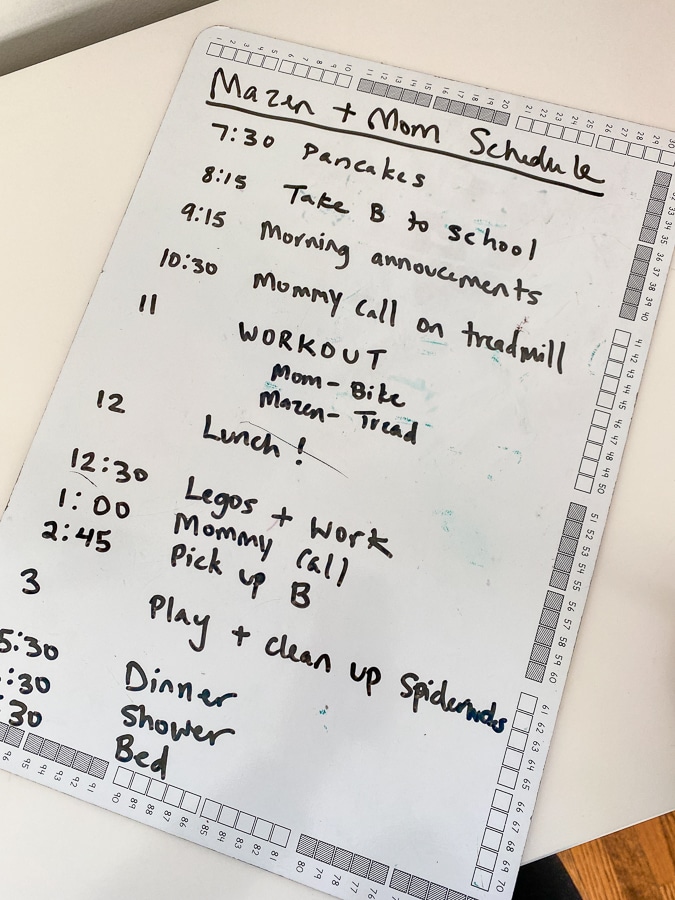 Mazen + Mom Schedule
7:30 Pancakes
8:15 Take B to school
9:15 Morning annoucements
10:30 Mommy Call on treadmill
11 WORKOUT
Mom - Bike
Mazen - Tread
12 Lunch!
12:30 Legos + Work
1:00 Mommy Call
2:45 Pick up B
3 Play + clean up Spiderwebs
5:30 Dinner
:30 Shower
:30 Bed
1 2 3 4 5 6 7 8 9 10 11 12 13 14 15 16 17 18 19 20 21 22 23 24 25 26 27 28 29 30
33 34 35 36 37 38 39 40 41 42 43 44 45 46 47 48 49 50 51 52 53 54 55 56 57 58 59 60 61 62 63 64 65 66 67 68 69 70
76 77 78 79 80 81 82 83 84 85 86 87 88 89 90 91 92 93 94 95 96